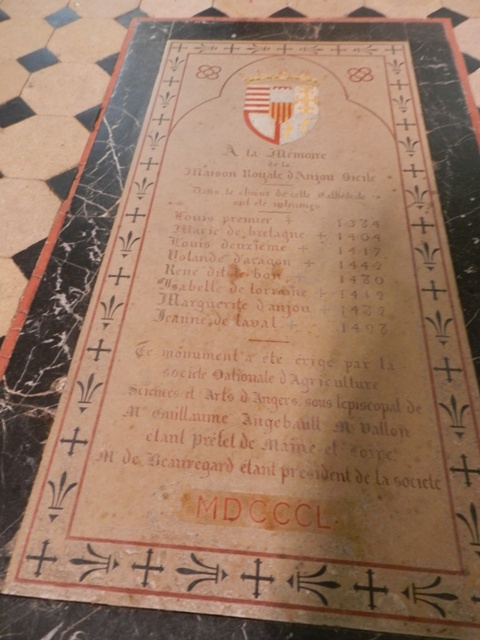 A la Mémoire
de la
Maison Royale d'Anjou Sicile
Dans le chœur de cette Cathédrale
ont été inhumés
Louis premier + 1384
Marie de bretagne + 1404
Louis deuxième + 1417
Yolande d'aragon + 1442
René dit le bon + 1480
Isabelle de lorraine +
Marguerite d'anjou + 1482
Jeanne de laval + 1498
Ce monument a été érigé par la
société Nationale d'Agriculture
Sciences et Arts d'Angers, sous l'épiscopat de
Mr Guillaume Angebault Mr Vallon
étant préfet de Maine et Loire
M de Beauregard étant président de la société
MDCCCL